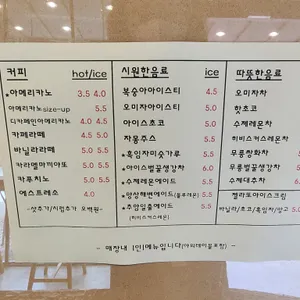 커피 hot/ice
*아메리카노 3.5 4.0
아메리카노size-up 5.5
디카페인아메리카노 4.0 4.5
카페라떼 4.5 5.5
바닐라라떼 5.5
카라멜마끼아또 5.5
카푸치노 5.0 5.5
에스프레소 4.0
-샷추가/시럽추가 오백원-
시원한음료 ice
복숭아아이스티 4.5
오미자아이스티 5.0
아이스초코 5.0
자몽주스 5.5
*흑임자미숫가루 5.5
*아이스벌꿀생강차 6.0
*수제레몬에이드 5.5
*망상해변에이드(블루레몬) 5.5
*추암일출에이드 5.5
(히비스커스레몬)
따뜻한음료
오미자차
핫초코
수제레몬차
히비스커스레몬차
무릉쌍화차
무릉벌꿀생강차
수제대추차 6.0
젤라또아이스크림
바닐라/초코/흑임자/망고 5.0
- 매장내 1인1메뉴입니다